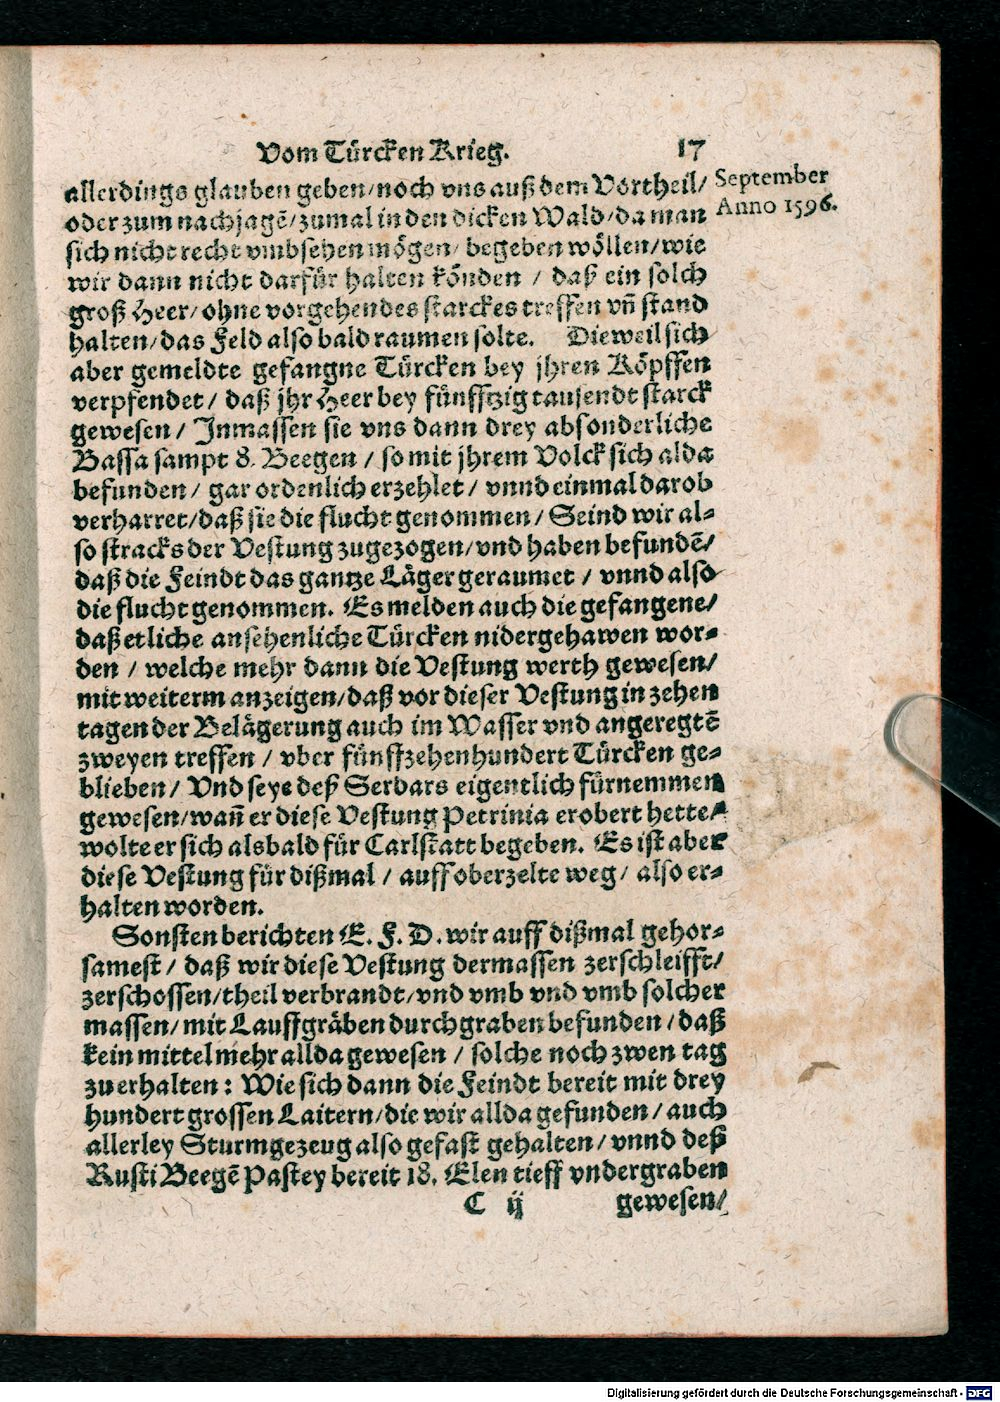 Vom Türcken Krieg. 17
September
Anno 1596.
allerdings glauben geben/noch vns auß dem Vortheil/
oder zum nachjagẽ/zumal in den dicken Wald/da man
sich nicht recht vmbsehen mögen/ begeben wöllen/wie
wir dann nicht darfür halten könden / daß ein solch
groß Heer/ohne vorgehendes starckes treffen vñ stand
halten/das Feld also bald raumen solte. Dieweil sich
aber gemeldte gefangne Türcken bey jhren Köpffen
verpfendet/ daß jhr Heer bey fünfftzig tausendt starck
gewesen / Inmassen sie vns dann drey absonderliche
Bassa sampt 8. Beegen / so mit jhrem Volck sich alda
befunden / gar ordenlich erzehlet / vnnd einmal darob
verharret/daß sie die flucht genommen/ Seind wir al-
so stracks der Vestung zugezogen/vnd haben befundẽ/
daß die Feindt das gantze Läger geraumet / vnnd also
die flucht genommen. Es melden auch die gefangene/
daß etliche ansehenliche Türcken nidergehawen wor-
den / welche mehr dann die Vestung werth gewesen/
mit weiterm anzeigen/daß vor dieser Vestung in zehen
tagen der Belägerung auch im Wasser vnd angeregtẽ
zweyen treffen / vber fünffzehenhundert Türcken ge-
blieben/ Vnd seye deß Serdars eigentlich fürnemmen
gewesen/wañ er diese Vestung Petrinia erobert hette/
wolte er sich alsbald für Carlstatt begeben. Es ist aber
diese Vestung für dißmal / auff oberzelte weg/ also er-
halten worden.
Sonsten berichten E. F. D. wir auff dißmal gehor-
samest / daß wir diese Vestung dermassen zerschleifft/
zerschossen/theil verbrandt/vnd vmb vnd vmb solcher
massen/mit Lauffgräben durchgraben befunden / daß
kein mittel mehr allda gewesen / solche noch zwen tag
zu erhalten: Wie sich dann die Feindt bereit mit drey
hundert grossen Laitern/die wir allda gefunden / auch
allerley Sturmgezeug also gefast gehalten/ vnnd deß
Rusti Beegẽ Pastey bereit 18. Elen tieff vndergraben
C ij gewesen/
Digitalisierung gefördert durch die Deutsche Forschungsgemeinschaft - DFG